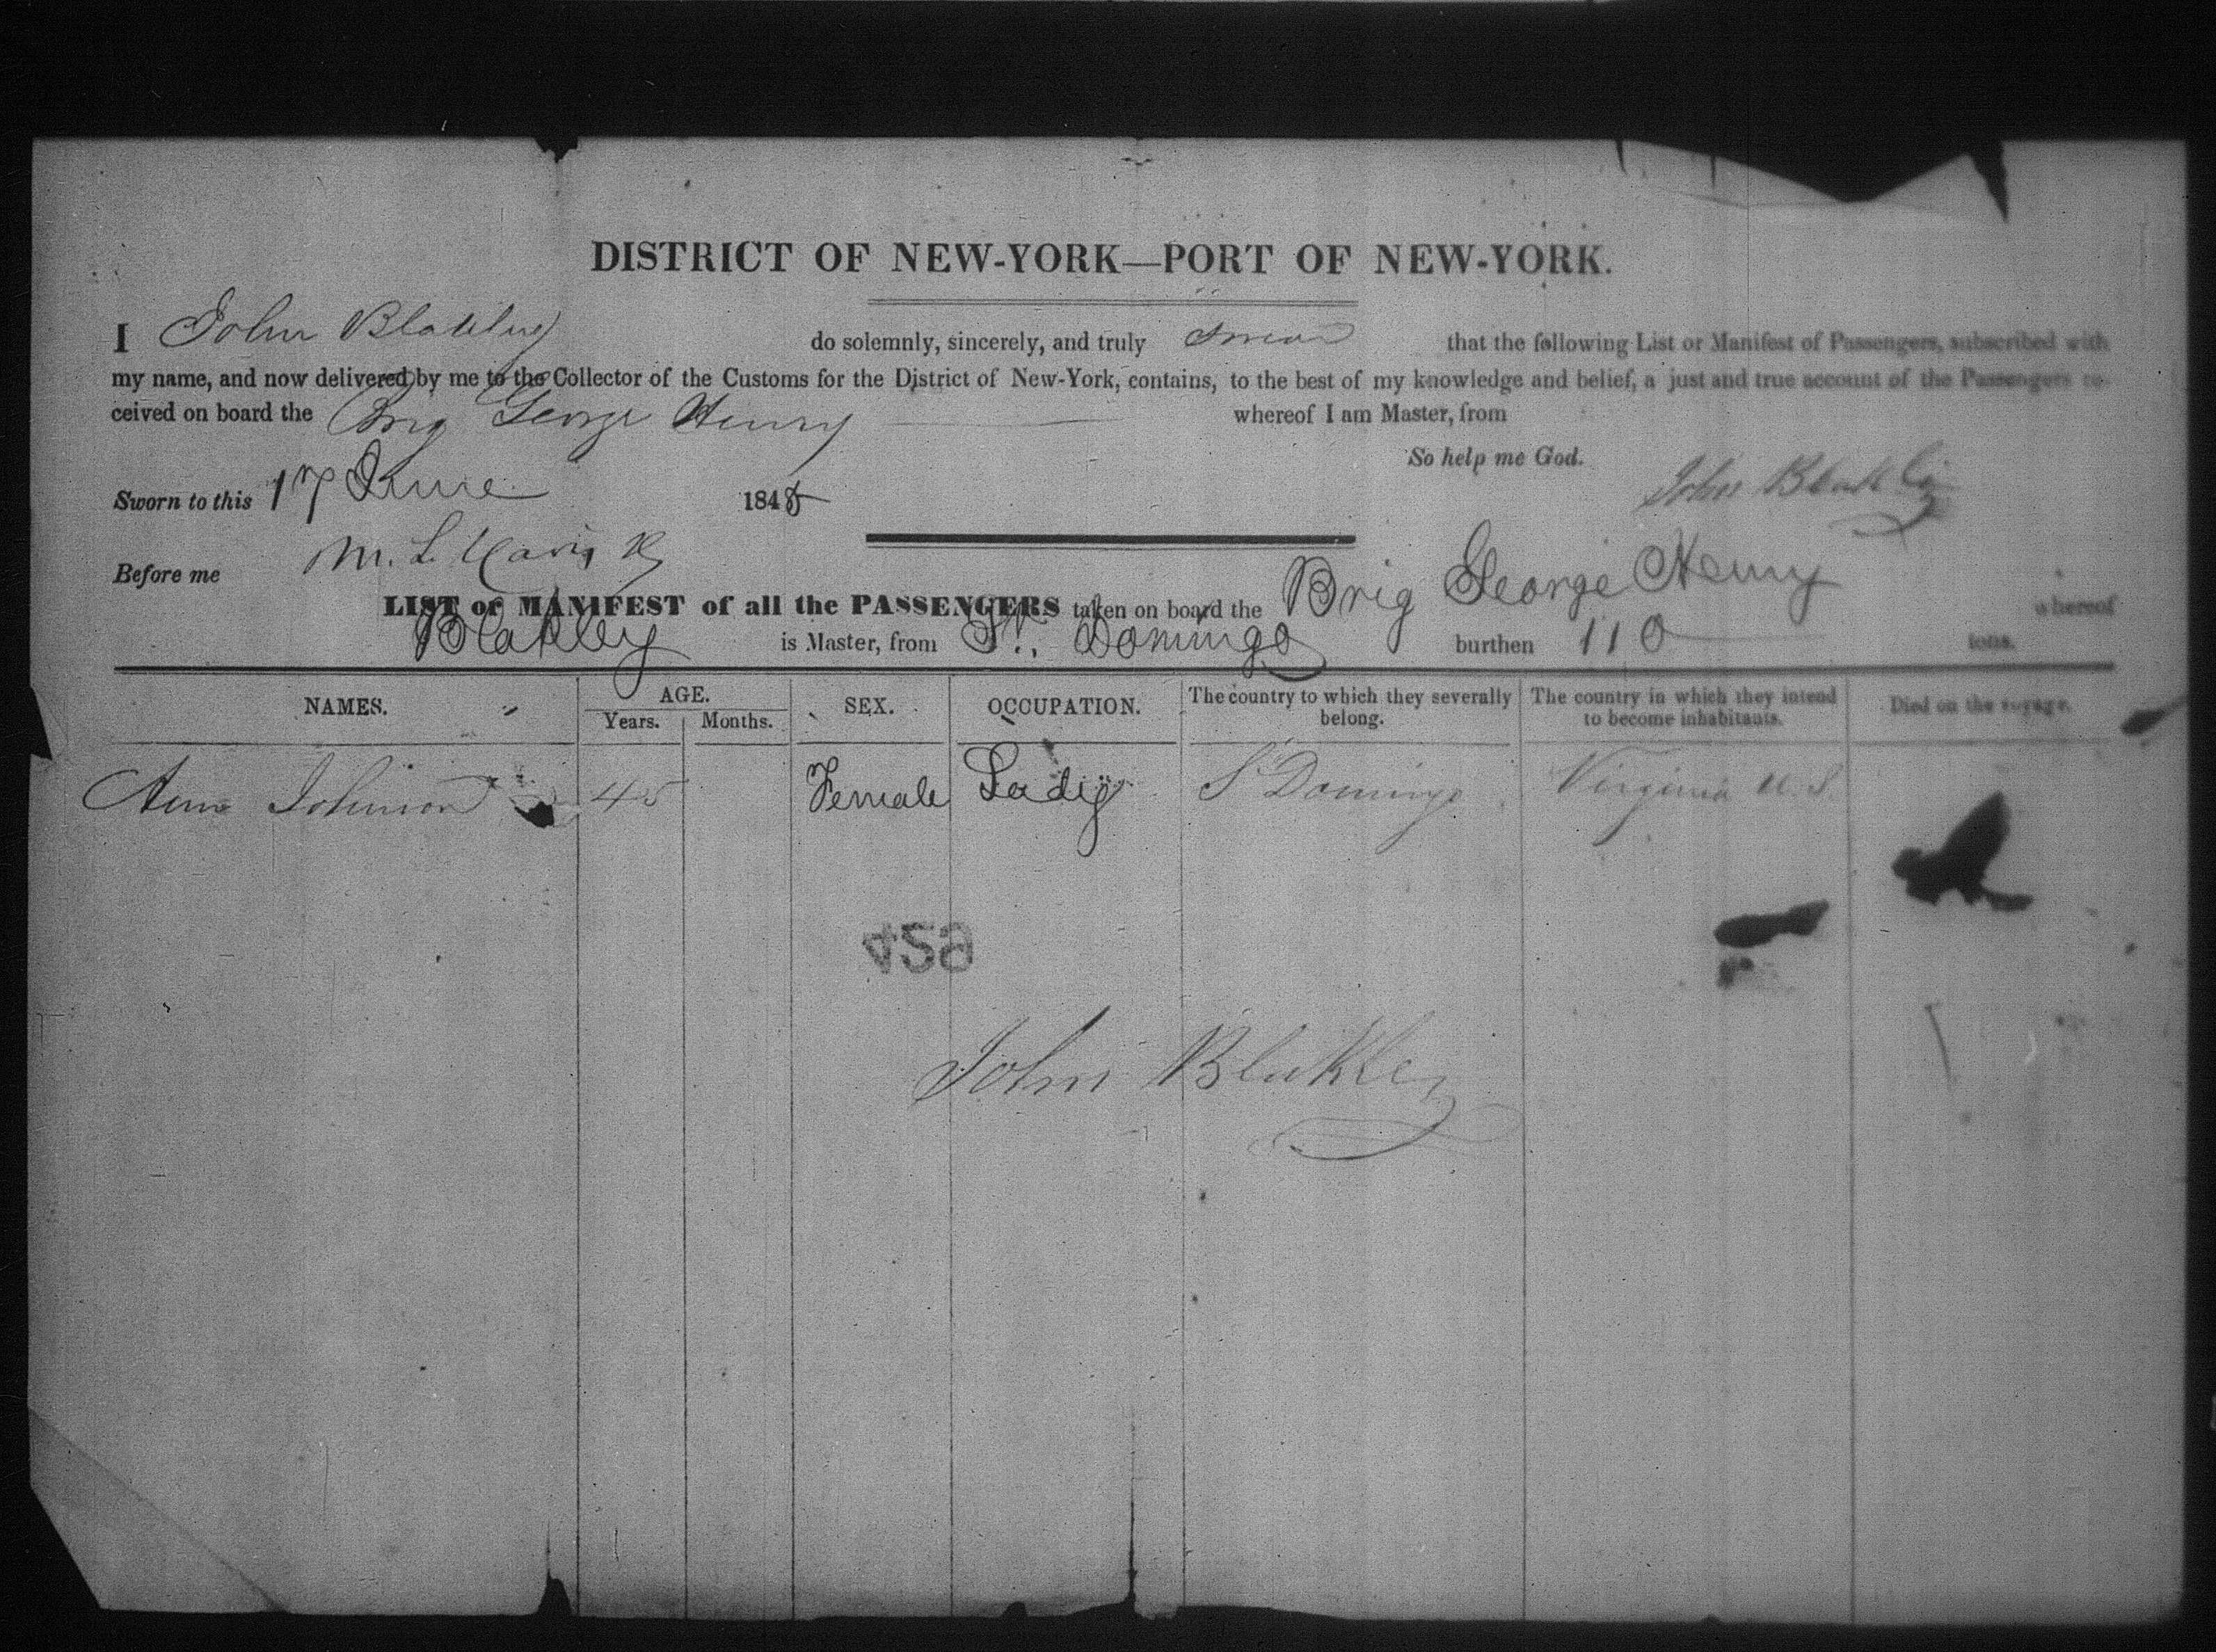 DISTRICT OF NEW-YORK—PORT OF NEW-YORK.
I John Blakley do solemnly, sincerely, and truly swear that the following List or Manifest of Passengers, subscribed with
my name, and now delivered by me to the Collector of the Customs for the District of New-York, contains, to the best of my knowledge and belief, a just and true account of the Passengers re-
ceived on board the Brig George Henry whereof I am Master, from
So help me God.
Sworn to this 17 June 184 John Blakley
Before me M. L. Davis
LIST or MANIFEST of all the PASSENGERS taken on board the Brig George Henry whereof
Blakley is Master, from St. Domingo burthen 110 tons.
NAMES. AGE. SEX. OCCUPATION. The country to which they severally belong. The country in which they intend to become inhabitants. Died on the voyage.
Years. Months.
Ann Johnson 45 Female Lady St Domingo Virginia U.S.
429
John Blakley